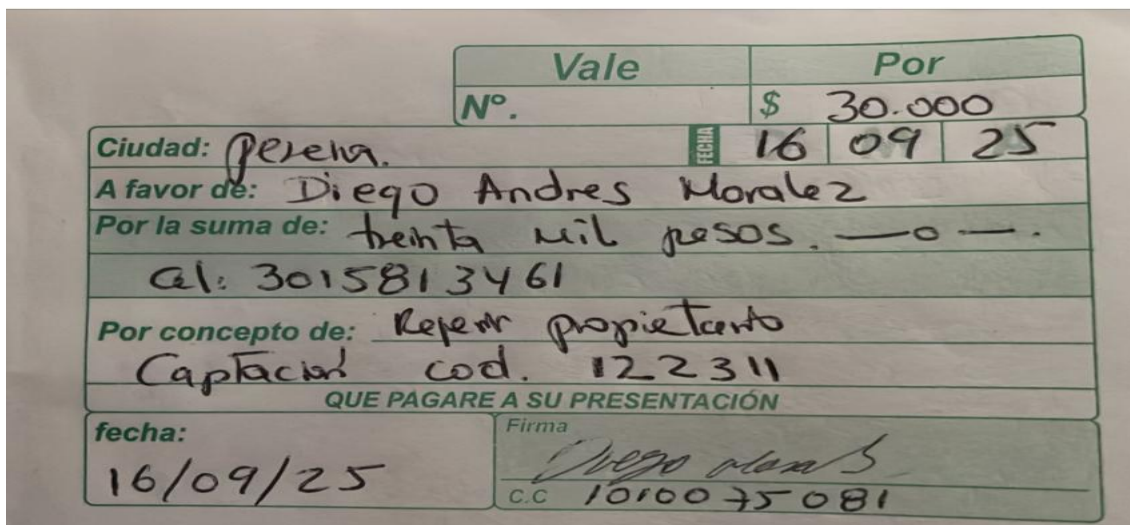 Vale Por
Nº. $ 30.000
Ciudad: Pereira. FECHA 16 09 25
A favor de: Diego Andres Moralez
Por la suma de: treinta mil pesos. —o—.
Cel: 3015813461
Por concepto de: Referir propietario
Captación cod. 122311
QUE PAGARE A SU PRESENTACIÓN
fecha: Firma
16/09/25 Diego
C.C 1010075081